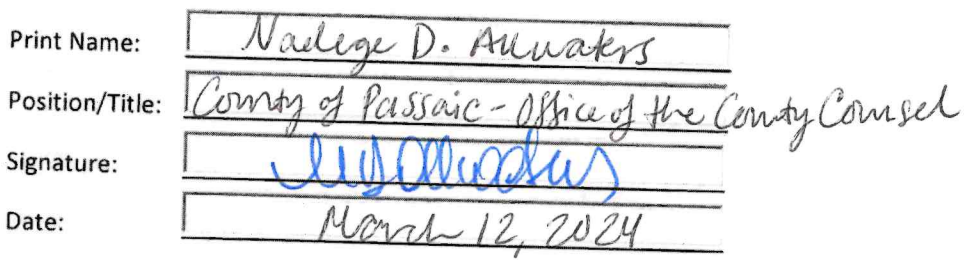 Print Name: Nadege D. Allwaters
Position/Title: County of Passaic - Office of the County Counsel
Signature:
Date: March 12, 2024